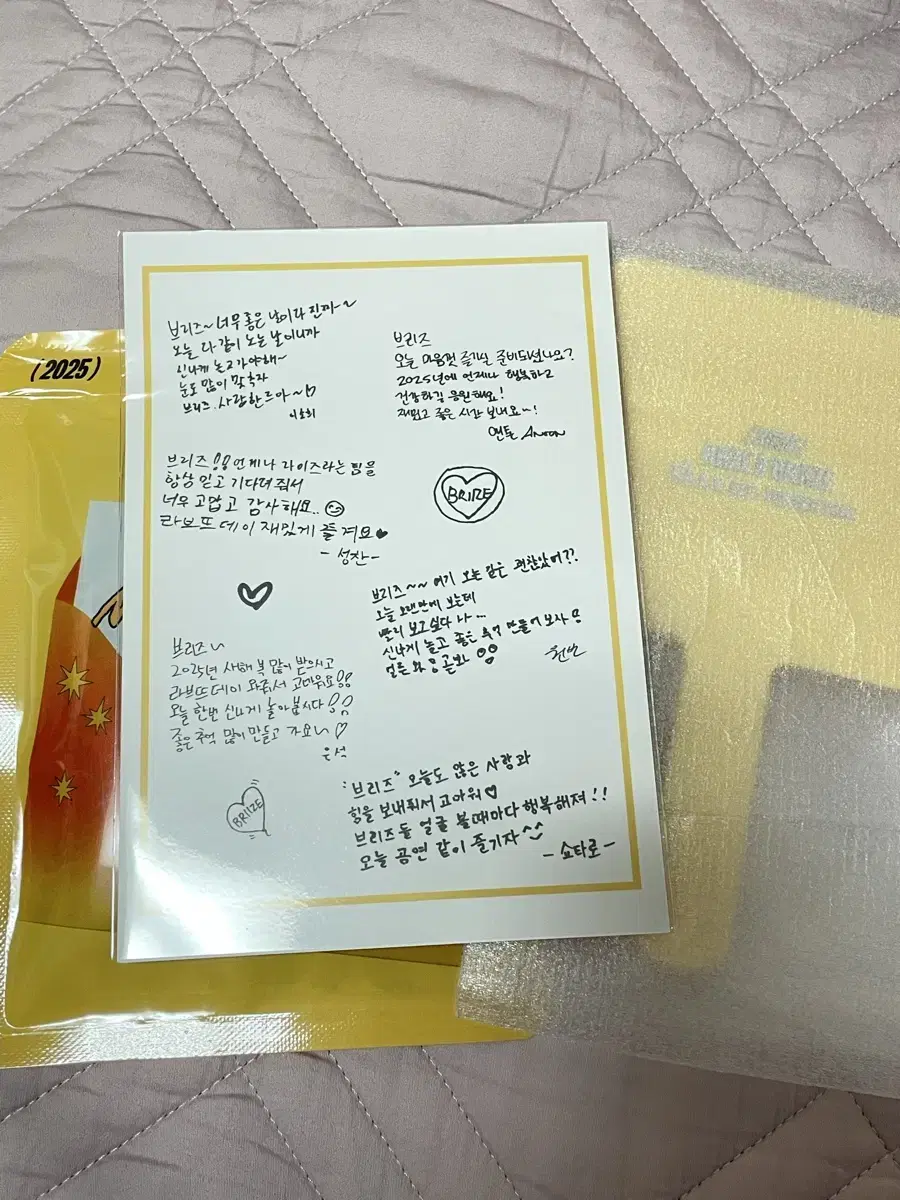 (2025)
브리즈~ 너무 좋은 날이라 진짜~
오늘 다 같이 노는 날이니까
신나게 놀고 가야해~
눈도 많이 맞추자
브리즈 사랑한드아~♡
브리즈
오늘 마음껏 즐기실 준비되셨나요?
2025년에 언제나 행복하고
건강하길 응원해요!
재밌고 좋은 시간 보내요~!
앤톤 ANTON
브리즈!! 언제나 라이즈라는 팀을
항상 믿고 기다려줘서
너무 고맙고 감사해요..
라브뜨데이 재밌게 즐겨요♥
- 성찬 -
BRIIZE
브리즈~~ 여기 오는 길은 괜찮았어??
오늘 오랜만에 보는데
빨리 보고싶다 나...
신나게 놀고 좋은 추억 만들어보자!
얼른 와
원빈
브리즈~
2025년 새해 복 많이 받으시고
라브뜨데이 와줘서 고마워요!!
오늘 한번 신나게 놀아봅시다!!
좋은 추억 많이 만들고 가요~♡
은석
BRIIZE
"브리즈" 오늘도 많은 사랑과
힘을 보내줘서 고마워♥
브리즈들 얼굴 볼때마다 행복해져!!
오늘 공연 같이 즐기자^^
- 쇼타로 -